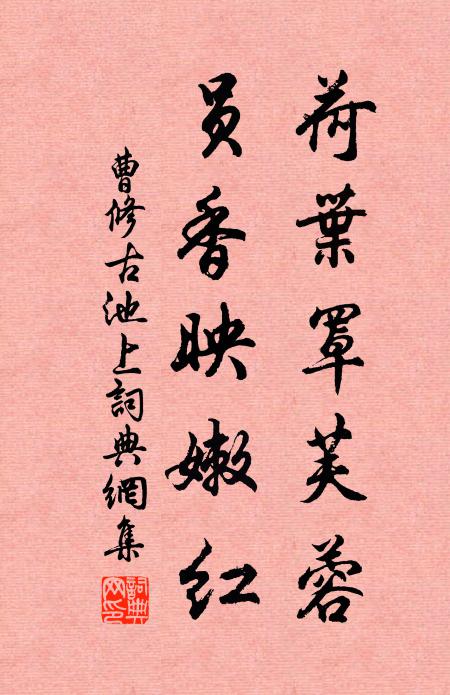 荷葉罩芙蓉
員香映嫩紅
曹修古池上詞典網集
詞典网印